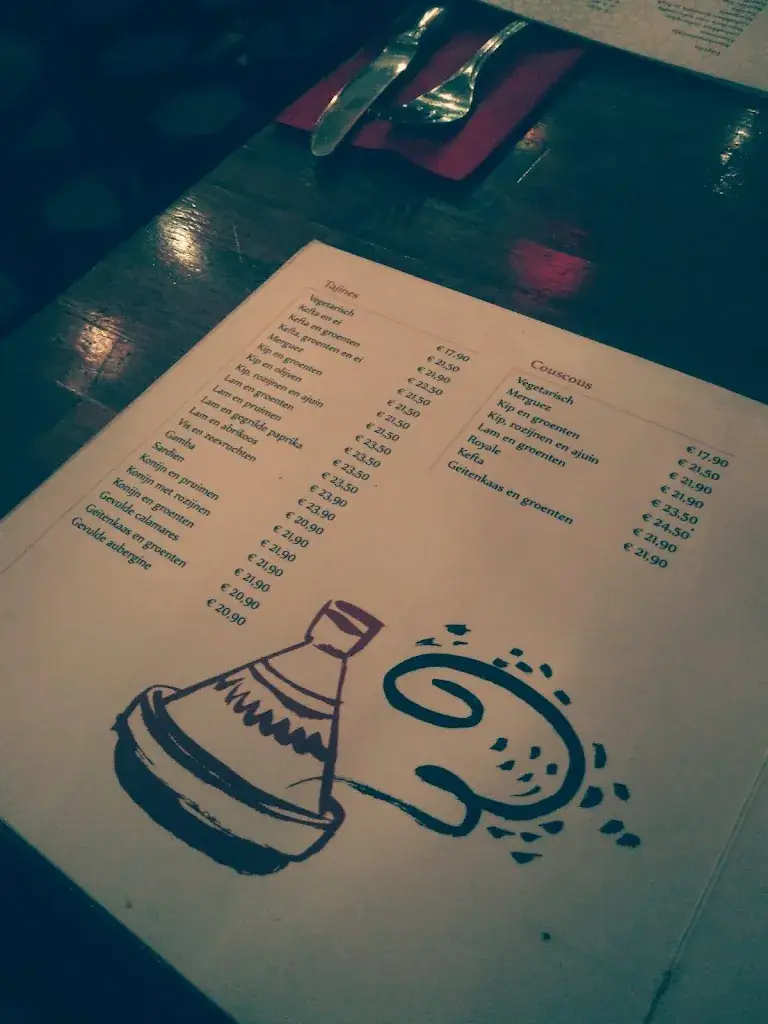 Tajines
Vegetarisch € 17,90
Kefta en ei € 21,50
Kefta en groenten € 21,90
Kefta, groenten en ei € 22,50
Merguez € 21,50
Kip en groenten € 21,50
Kip en olijven € 21,50
Kip, rozijnen en ajuin € 21,50
Lam en groenten € 23,50
Lam en pruimen € 23,50
Lam en gegrilde paprika € 23,50
Lam en abrikoos € 23,50
Vis en zeevruchten € 23,90
Gamba € 23,90
Sardien € 20,90
Konijn en pruimen € 21,90
Konijn met rozijnen € 21,90
Konijn en groenten € 21,90
Gevulde calamares € 21,90
Geitenkaas en groenten € 20,90
Gevulde aubergine € 20,90
Couscous
Vegetarisch € 17,90
Merguez € 21,50
Kip en groenten € 21,90
Kip, rozijnen en ajuin € 21,90
Lam en groenten € 23,50
Royale € 24,50
Kefta € 21,90
Geitenkaas en groenten € 21,90